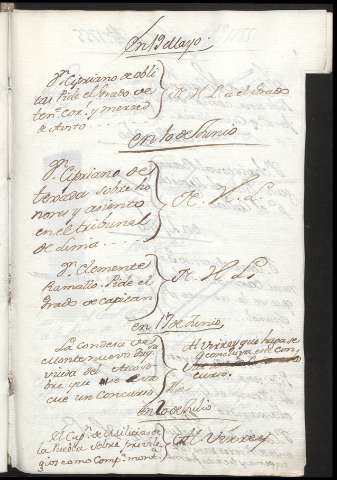 en 19 Mayo.
Dn. Cipriano de obli
tas Pide el Grado de
tente. Corl. y merced
de Avito
A. H. L. el Grado
en 10 de Junio
Dn. Cipriano de
texada sobre ho
nores y asiento
en el tribunal
de Lima
A. H. L.
Dn. Clemente
Ramallo. Pide el
grado de capitan
A. H. L.
en 17 de Junio,
La Condesa de
Montenuevo
viuda del
bre que
cue un Concurso
Al Virrey que haga se
concluya este con
curso.
en 10 de Julio
El Capn. de Milicias de
la Puebla sobre privile
gios como
Al Virrey